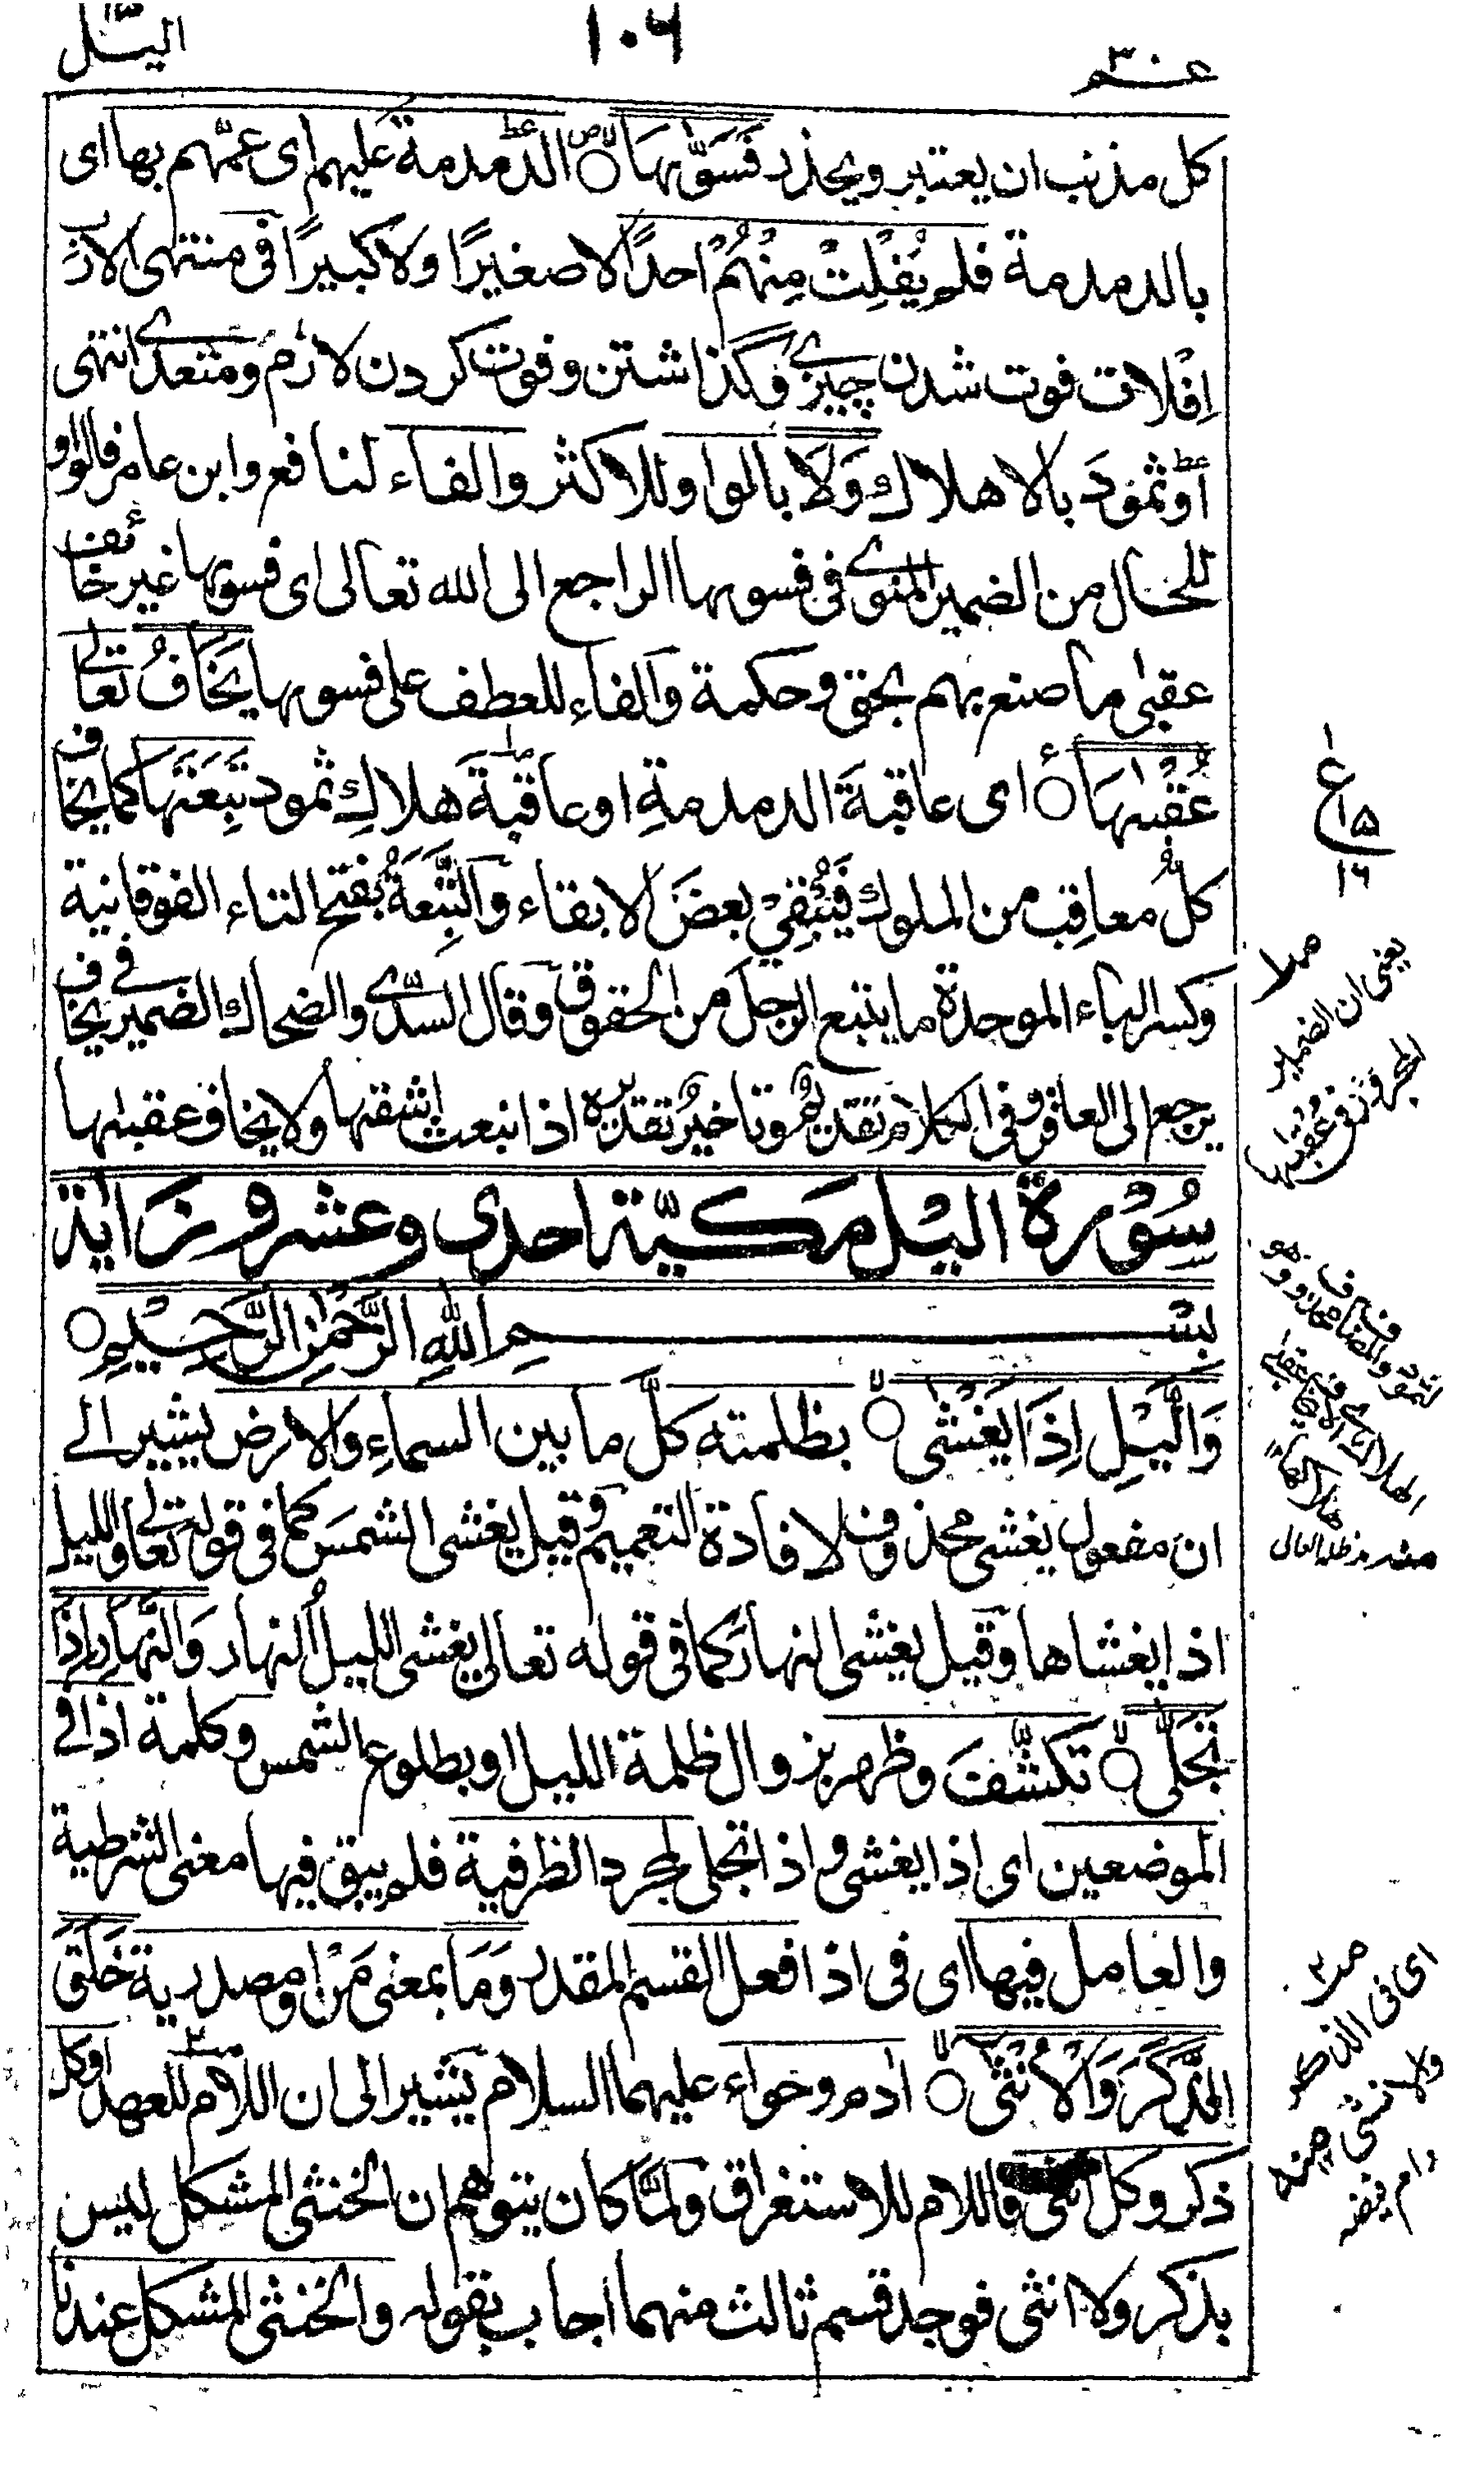 عم
١٠٦
اليل
كل مذنب ان يعتبر ويحذر فَسَوّٰىهَا الدمدمة عليهم اى عمّهم بها اى
بالدمدمة فلم يُفْلِتْ مِنْهُمْ احدًا لا صغيرًا ولا كبيرًا فى منتهى الارب
اِفْلات فوت شدن چيزے وگذاشتن وفوت كردن لازم ومتعدے انتهى
اوثمودَ بالاهلاك وَلَا بالواو للاكثر والفاء لنافع وابن عامر فالواو
للحال من الضمير المنوے فى فسوىها الراجع الى الله تعالى اى فسوىها غير خائف
عقبٰى ما صنع بهم بحق وحكمة والفاء للعطف على فسوىها يَخَافُ تعالے
عُقْبٰىهَا اى عاقبةَ الدمدمةِ او عاقبةَ هلاكِ ثمود تَبِعَتَهَا كما يخاف
كلُّ معاقِب من الملوك فَيُبْقِيْ بعضَ الابقاء والتَّبِعَةُ بفتح التاء الفوقانية
وكسر الباء الموحدة ما يتبع الرجل من الحقوق وقال السدّى والضحاك الضمير فى يخاف
يرجع الى العاقر وفى الكلام تقديمٌ وتاخيرٌ تقديره اذ انبعث اشقٰها ولا يخاف عقبٰها
سُوْرة اليل مكيّة احدى وعشرون اٰية
بسم الله الرَّحْمٰنِ الرَّحِيْمِ
وَالَّيْلِ اِذَا يَغْشٰى بظلمته كلَّ ما بين السماءِ والارض يشير الے
ان مفعول يغشى محذوف لافادة التعميم وقيل يغشى الشمسَ كما فى قوله تعالے والليل
اذا يغشاها وقيل يغشى النهارَ كما فى قوله تعالى يغشى الليلُ النهار وَالنَّهَارِ اِذَا
تَجَلّٰى تكشّفَ وظهر بزوال ظلمة الليل او بطلوع الشمس وكلمة اذا فے
الموضعين اى اذا يغشى واذا تجلى لمجرد الظرفية فلم يبق فيها معنى الشرطية
والعامل فيها اى فى اذا فعل القسم المقدر وَمَا بمعنى مَنْ او مصدرية خَلَقَ
الذَّكَرَ وَالْاُنْثٰى ادم وحواء عليهما السلام يشير الى ان اللام للعهد اوكل
ذكر وكل انثى فاللام للاستغراق ولمّا كان يتوهم ان الخنثى المشكل ليس
بذكر ولا انثى فوجد قسم ثالث منهما اجاب بقوله والخنثى المشكل عندنا
ع
١٥
١٦
يعنى ان الضمير
اى فى الذكر